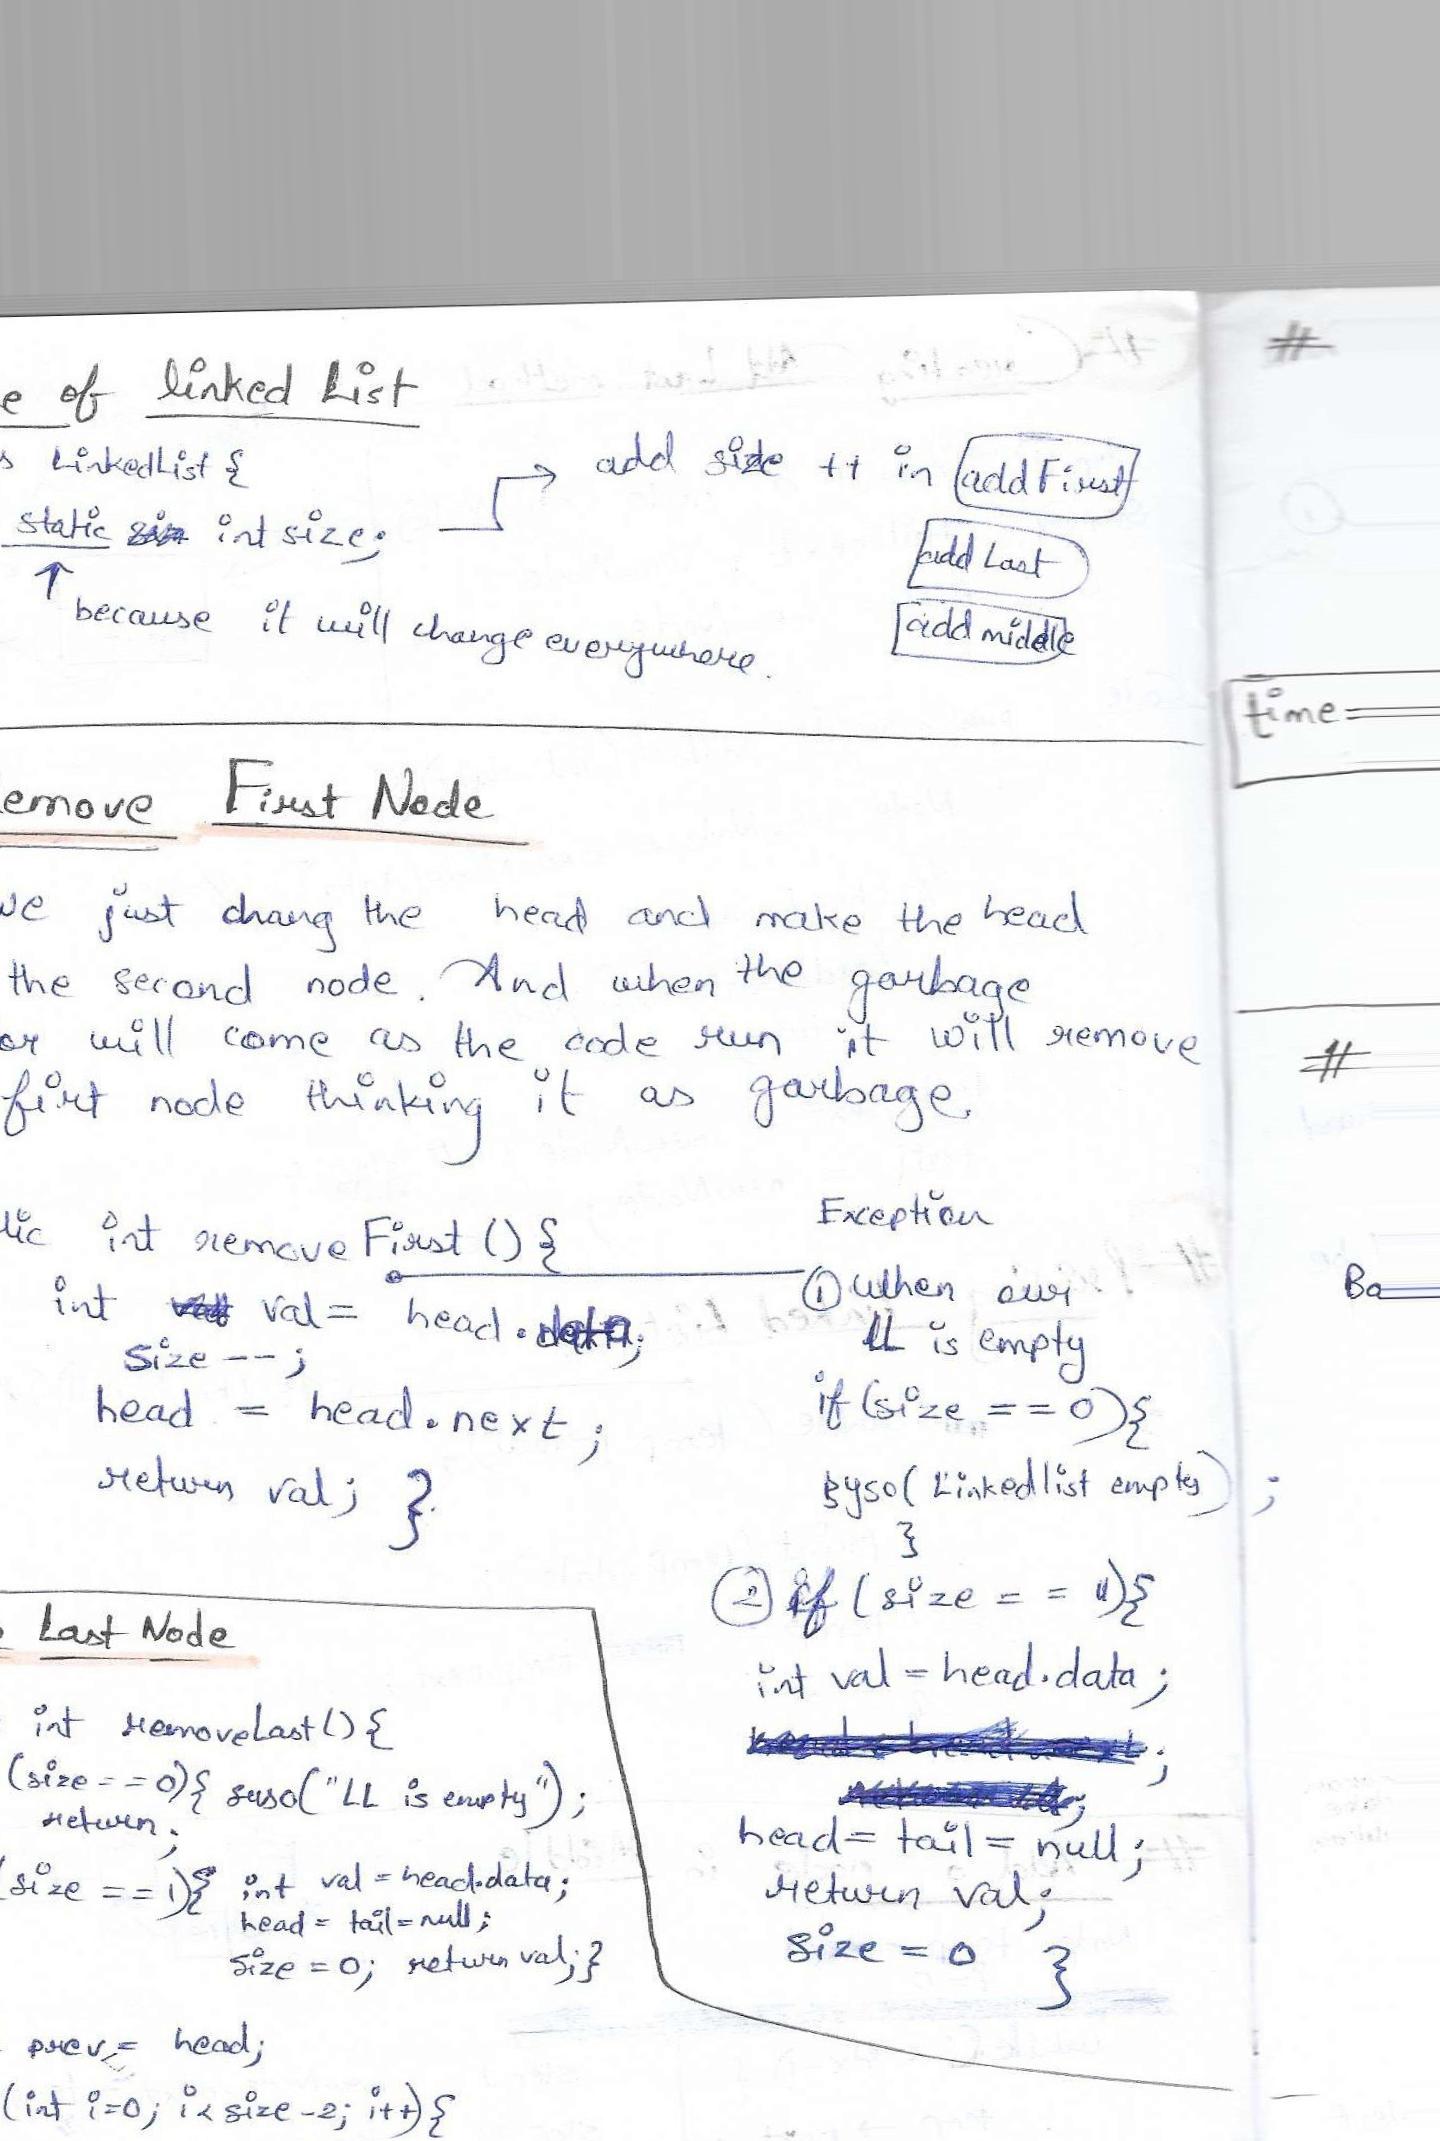 e of linked List
s LinkedList {
static int size;
↑ because it will change everywhere.
→ add size ++ in add First
add Last
add middle
emove First Node
we just chang the head and make the head
the second node. And when the garbage
or will come as the code run it will remove
firt node thinking it as garbage.
lic int remove First () {
int val = head.data;
size --;
head = head.next;
return val; }
Exception
① When our
LL is empty
if (size == 0) {
syso( Linkedlist empty) ;
}
② if (size == 1) {
int val = head.data;
head = tail = null;
return val;
size = 0 }
e Last Node
int removeLast() {
(size == 0) { syso("LL is empty");
return;
(size == 1) { int val = head.data;
head = tail = null;
size = 0; return val; }
prev = head;
(int i=0; i < size -2; i++) {
#
time =
#
Ba